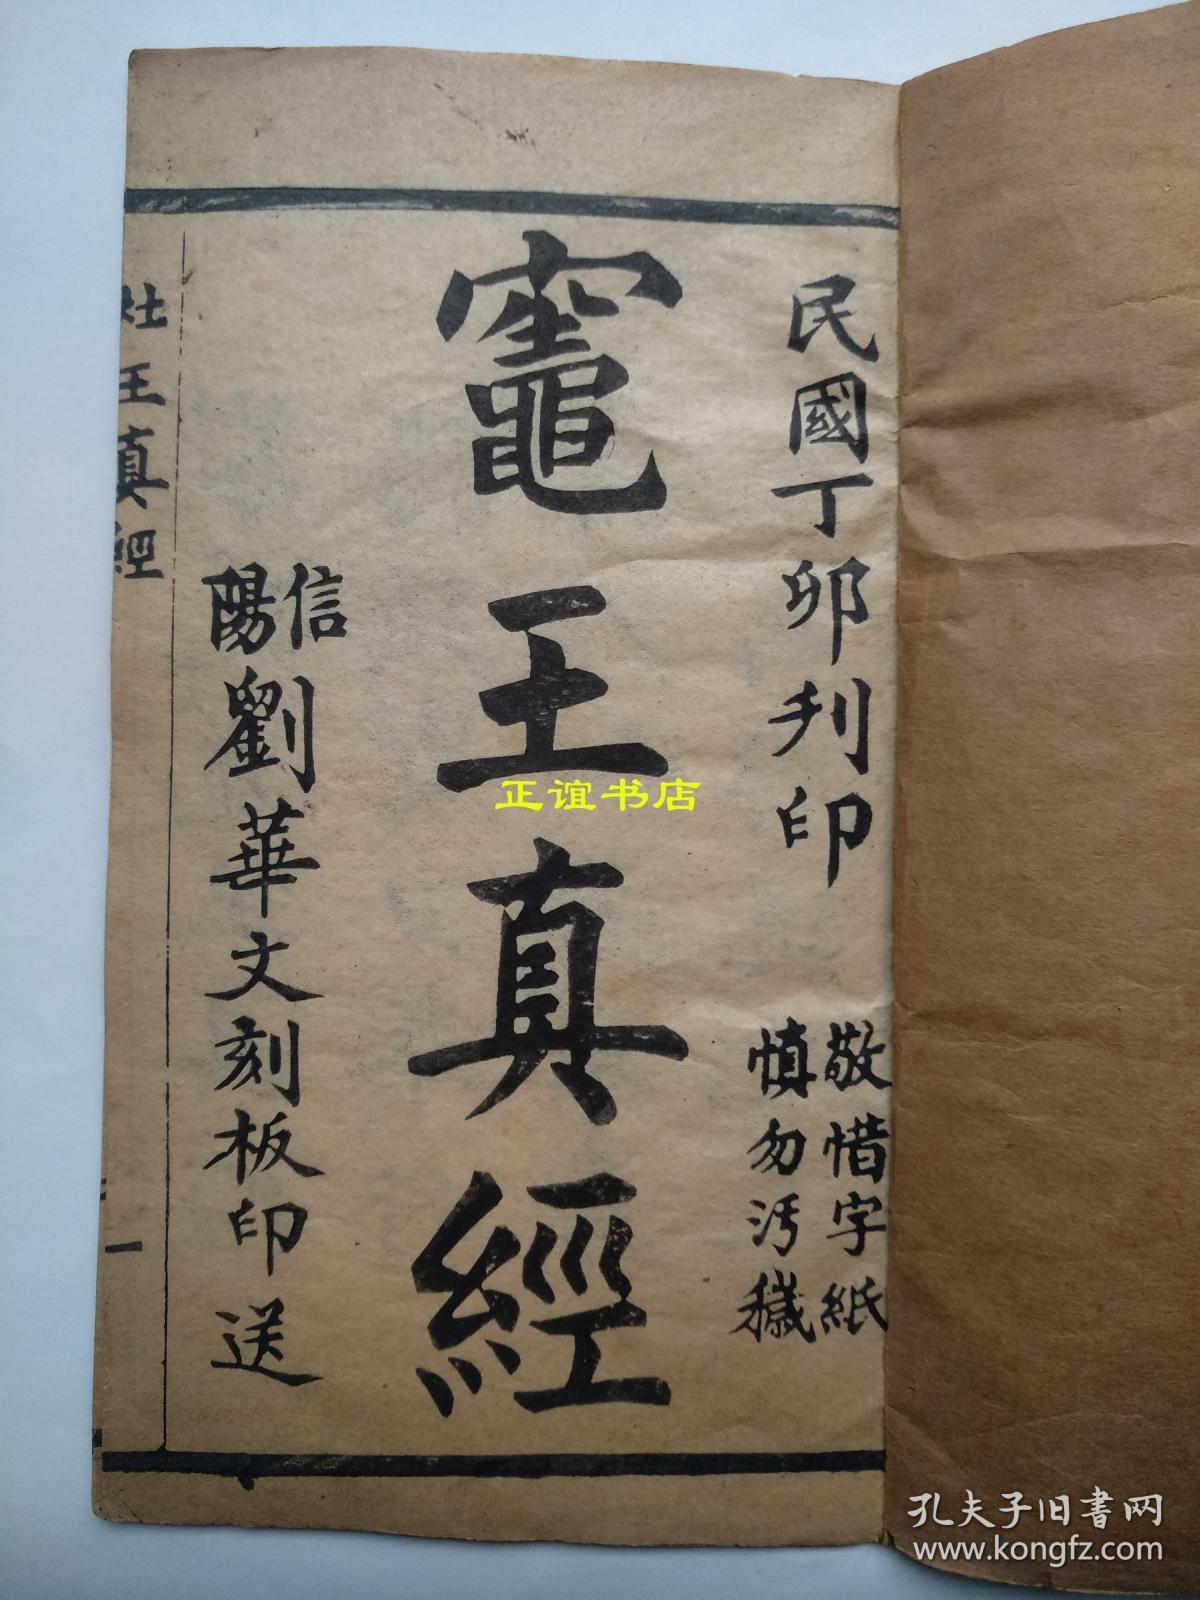 民國丁卯刋印
敬惜字紙
慎勿汚穢
竈王真經
信陽
劉華文刻板印送
灶王真經
一
正谊书店
孔夫子旧书网
www.kongfz.com